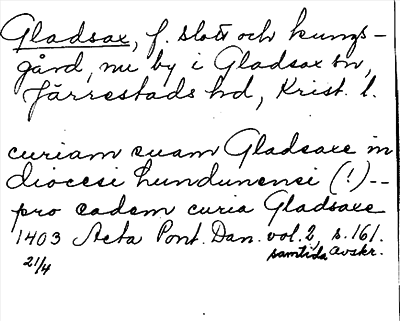 Gladsax, f. slott och kungs-
gård, nu by i Gladsax sn,
Järrestads hd, Krist. l.
curiam suam Gladsaxe in
diocesi hundunensi (!)--
pro eadem curia Gladsaxe
1403 Acta Pont. Dan. vol. 2, s. 161.
21/4 samtida Avskr.